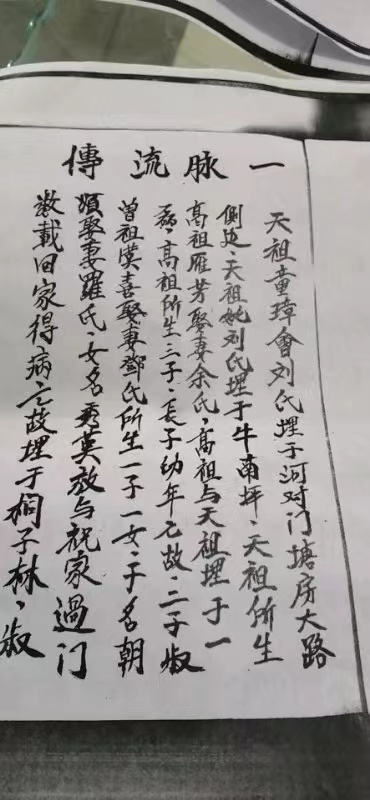 一脉流傳
天祖童璋會刘氏埋于河对门塘房大路
側边、天祖妣刘氏埋于牛南坪、天祖所生
高祖雁芳娶妻余氏、高祖与天祖埋于一
高祖所生三子、長子幼年亡故、二子
曾祖漢喜娶妻鄧氏所生一子一女、子名朝
娶妻羅氏、女名秀英放与祝家過门
数載回家得病亡故埋于桐子林、